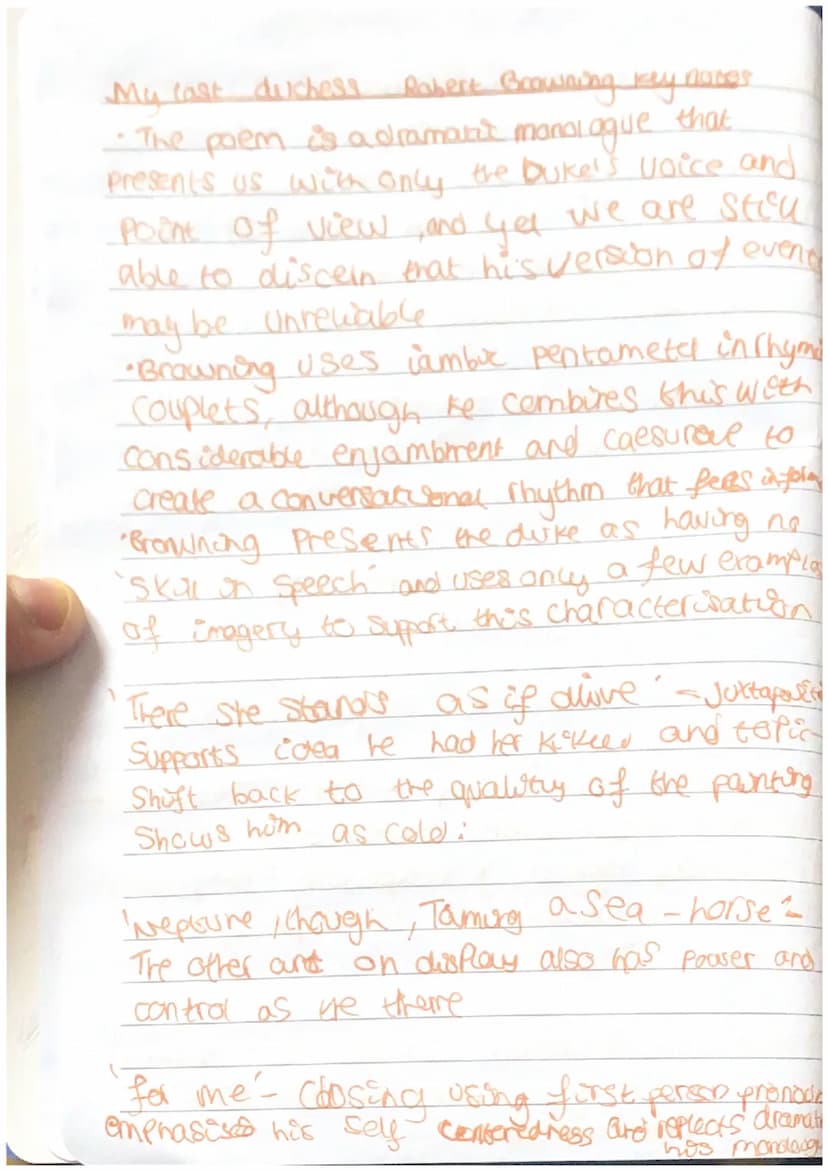 My last duchess Robert Browning key notes
· The poem is a dramatic monologue that
presents us with only the Duke's voice and
point of view, and yet we are still
able to discern that his version of events
may be unreliable
· Browning uses iambic pentameter in rhyming
couplets, although he combines this with
considerable enjambment and caesurae to
create a conversational rhythm that feels inform
· Browning presents the duke as having no
'skill in speech' and uses only a few examples
of imagery to support this characterisation
'There she stands as if alive' - juxtapositi
supports idea he had her killed and topic
shift back to the quality of the painting
shows him as cold.
'Neptune, though, Taming a sea-horse' -
The other art on display also has power and
control as the theme
'for me' - closing using first person pronoun
emphasises his self centeredness and reflects dramatic
his monologu